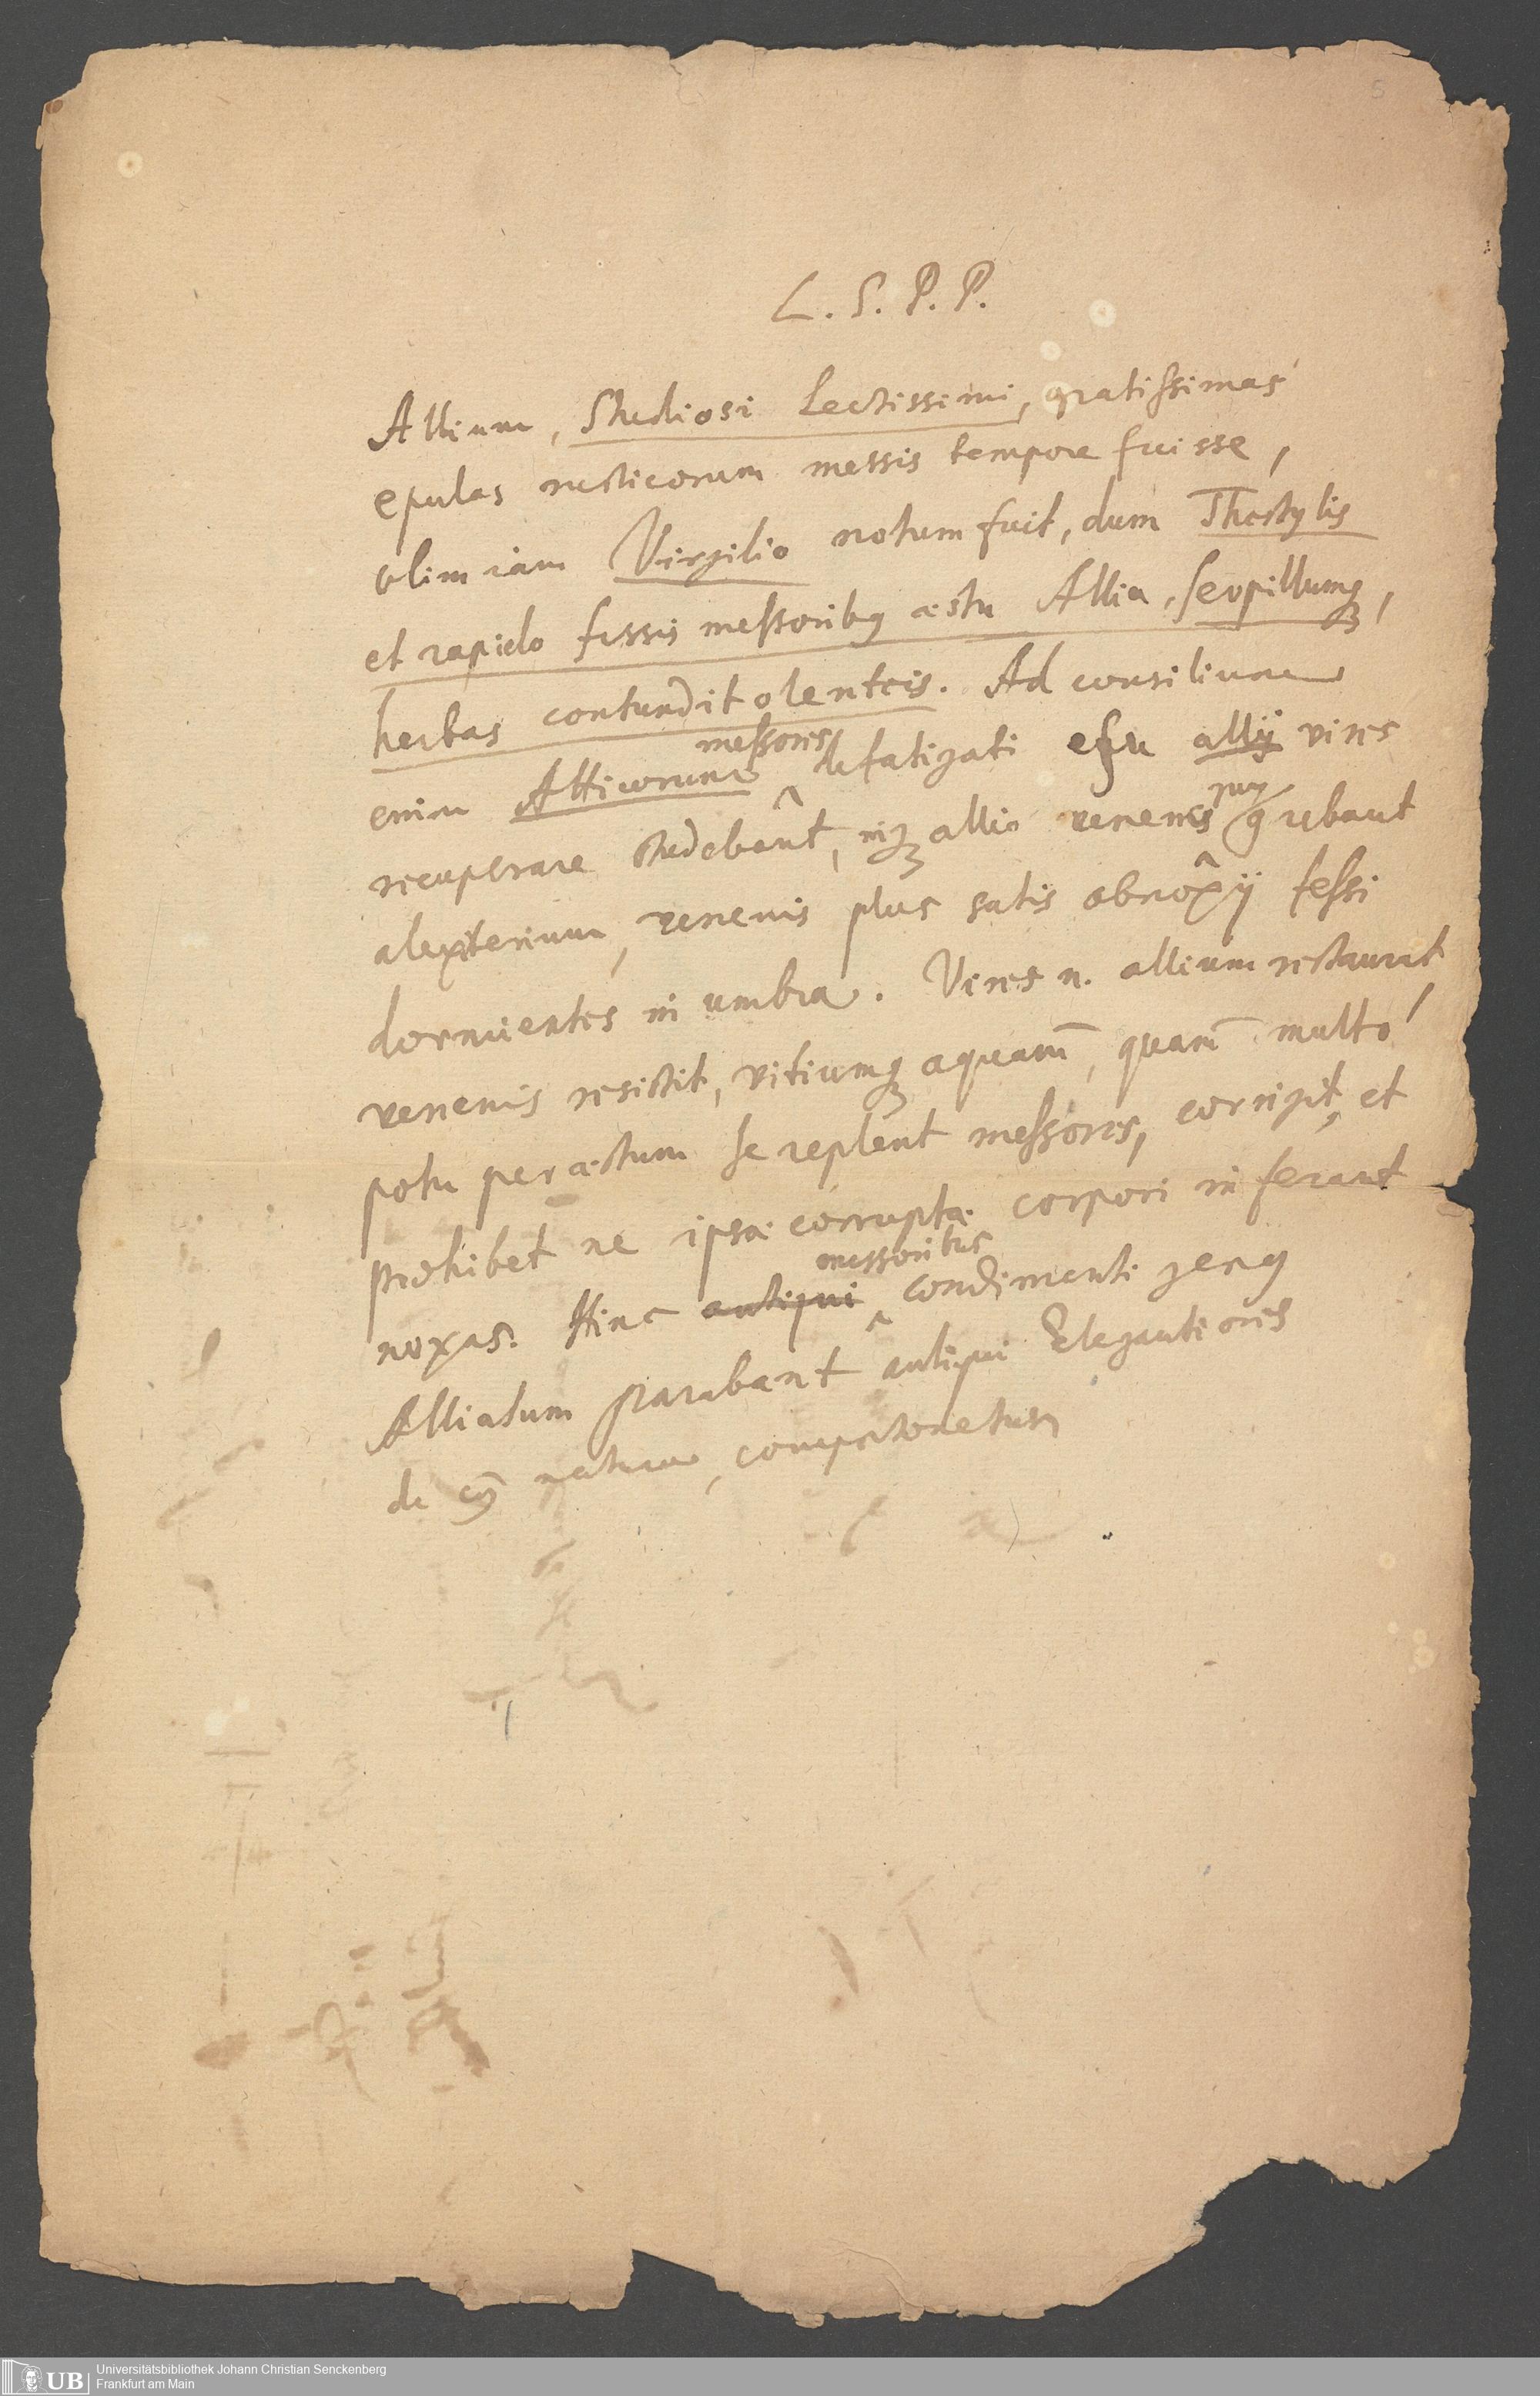 5
L. S. P. P.
Allium, Studiosi Lectissimi, gratissimas
epulas rusticorum messis tempore fuisse,
olim iam Virgilio notum fuit, dum Thestylis
et rapido fessis messoribq æstu Allia, serpillumq,
herbas contundit olenteis. Ad consilium
enim Atticorum messores defatigati esu allij vires
recuperare studebant, inq allio venenis quærebant
alexiterium, venenis plus satis obnoxij fessi
dormientes in umbra. Vires n. allium restaurat
venenis resistit, vitiumq aquarum, quarum multo
potu per æstum se replent messores, corrigit, et
prohibet ne ipsæ corruptæ corpori inferant
noxas. Hinc antiqui messoribus condimenti genq
Alliatum parabant antiqui Elegantiores
de cuj natura,
UB Universitätsbibliothek Johann Christian Senckenberg
Frankfurt am Main